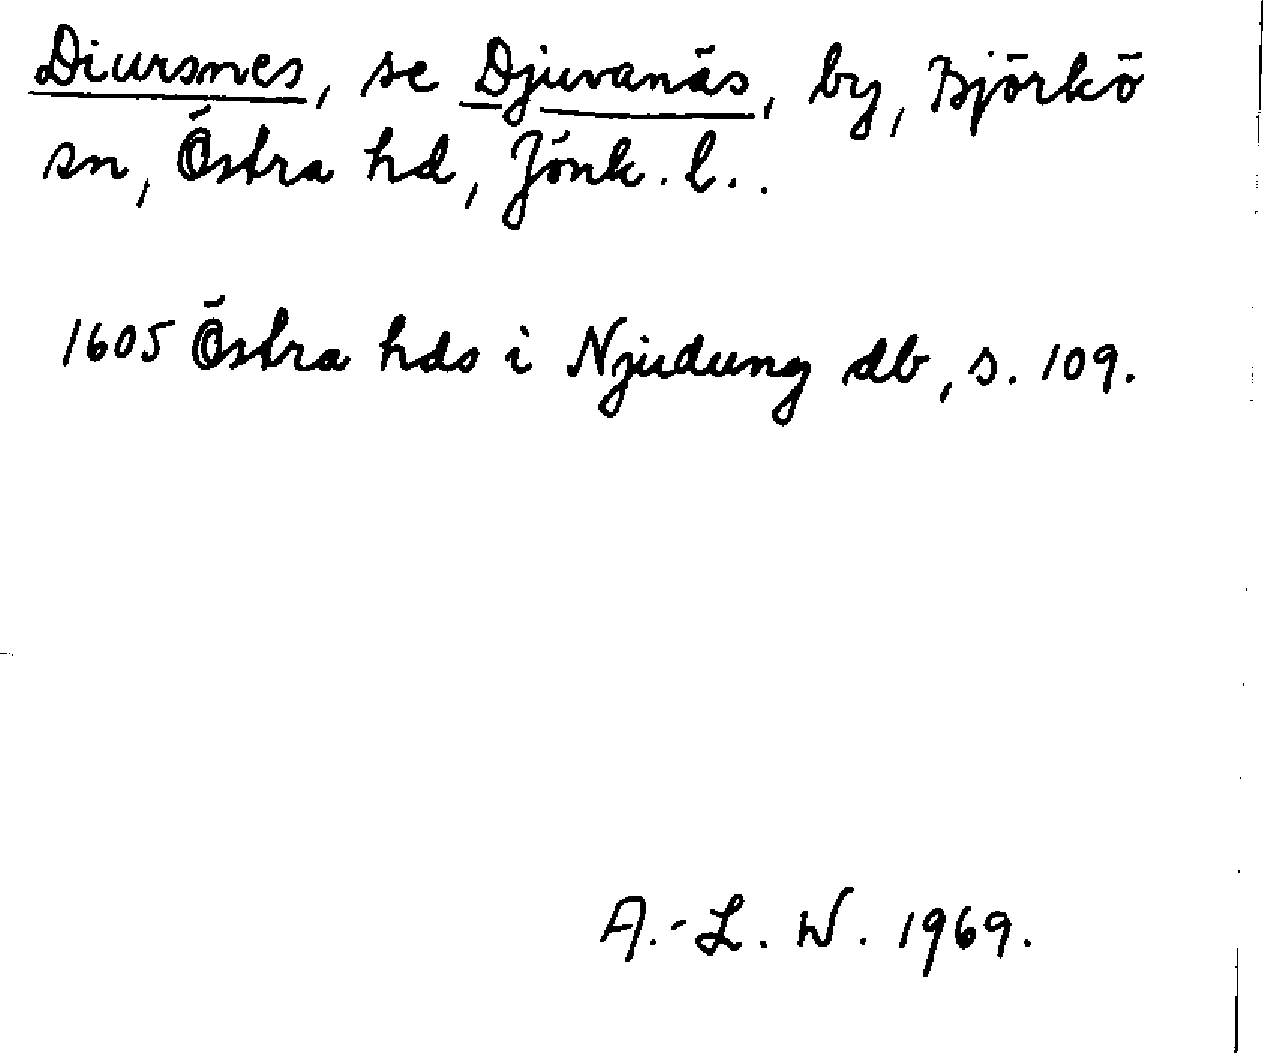 Diursnes, se Djuvanäs, by, Björkö
sn, Östra hd, Jönk. l..
1605 Östra hds i Njudung db, s. 109.
A.-L. W. 1969.